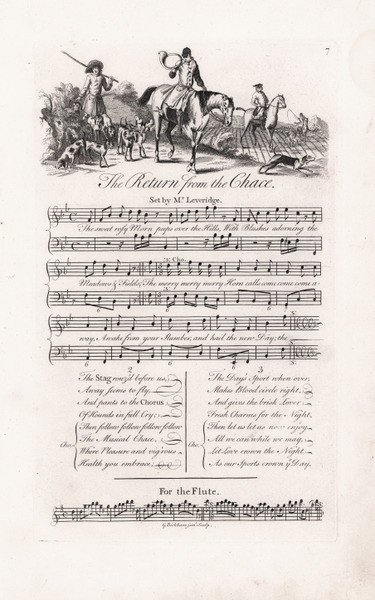 7
The Return from the Chace.
Set by Mr. Leveridge.
The sweet rosy Morn peeps over the Hills, With Blushes adorning the
Cho.
Meadows & Fields; The merry merry merry Horn calls come come come a-
way, Awake from your Slumber, and hail the new Day; the
2
The Stag rouz'd before us,
Away seems to fly,
And pants to the Chorus
Of Hounds in full Cry;
Cho. Then follow follow follow follow
The Musical Chace,
Where Pleasure and vigorous
Health you embrace.
3
The Day's Sport when over,
Makes Blood circle right,
And gives the brisk Lover
Fresh Charms for the Night,
Cho. Then let us let us now enjoy
All we can while we may,
Let Love crown the Night
As our Sports crown ye Day.
For the Flute.
G. Bickham junr. Sculp.